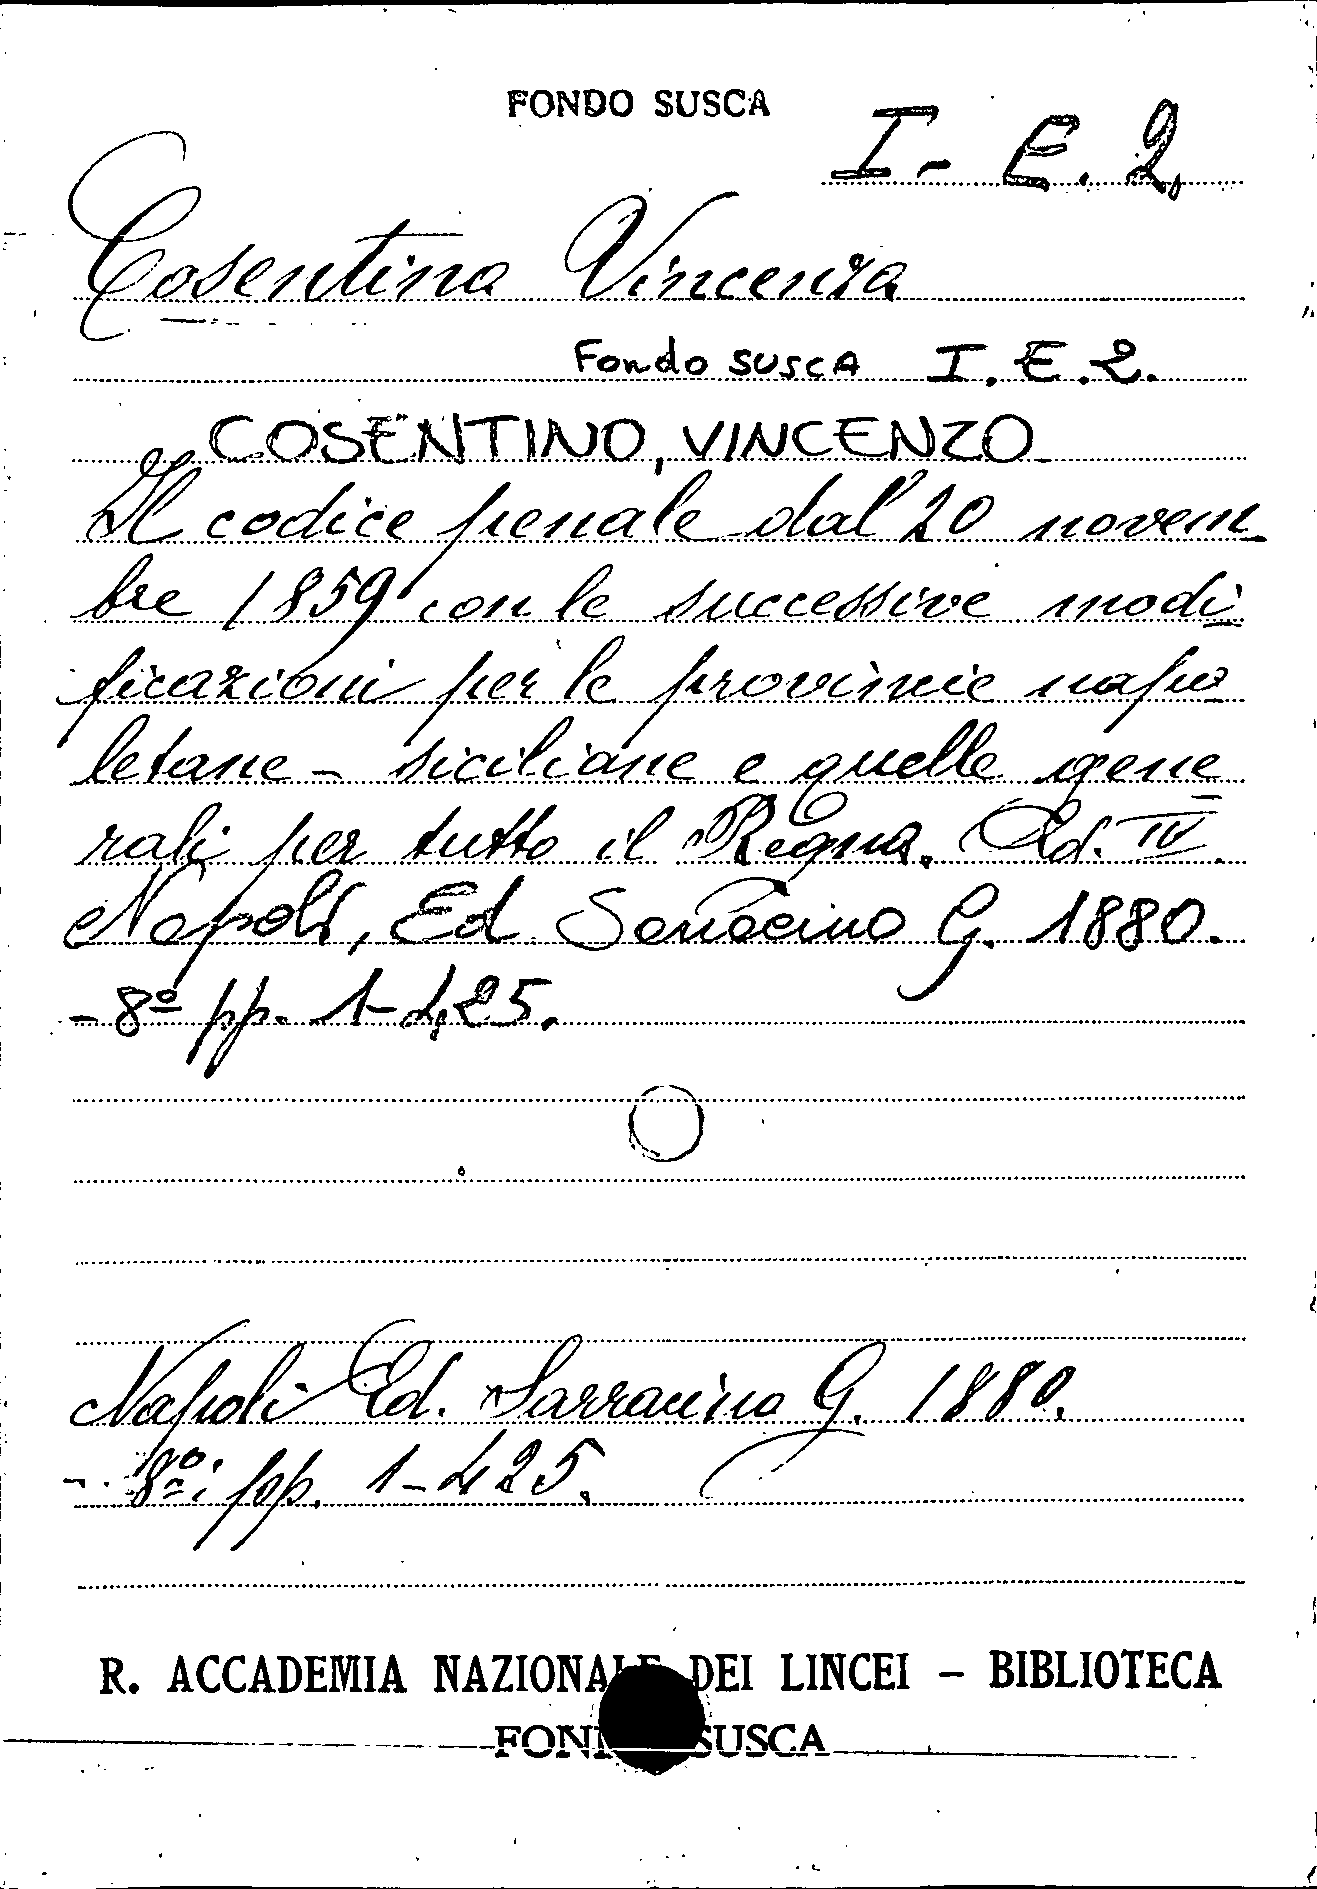 FONDO SUSCA
I - E. 2.
Cosentino Vincenzo
Fondo SUSCA I. E. 2.
COSENTINO, VINCENZO
Il codice penale dal 20 novem-
bre 1859 con le successive modi
ficazioni per le provincie napo
letane - siciliane e quelle gene
rali per tutto il Regno. Ed. IV.
Napoli, Ed. Sarracino G. 1880.
- 8º pp. 1-425.
Napoli Ed. Sarracino G. 1880.
- 8º; pp. 1-425.
R. ACCADEMIA NAZIONALE DEI LINCEI - BIBLIOTECA
FONDO SUSCA